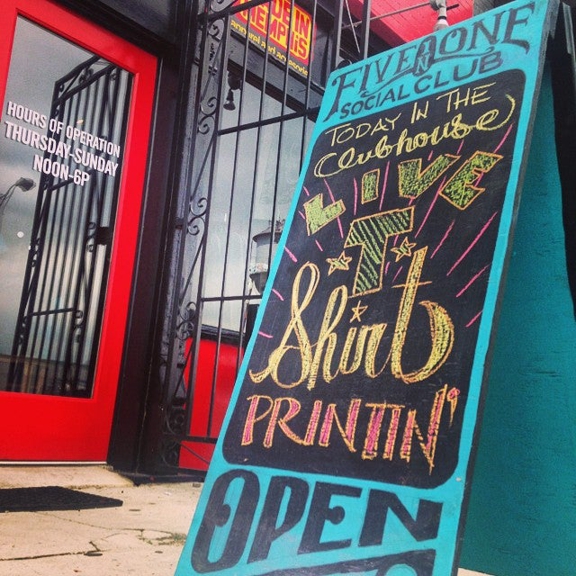 HOURS OF OPERATION
THURSDAY-SUNDAY
NOON-6P
MADE IN
MEMPHIS
FIVE IN ONE
SOCIAL CLUB
TODAY IN THE
Clubhouse
LIVE
T
Shirt
PRINTIN'
OPEN